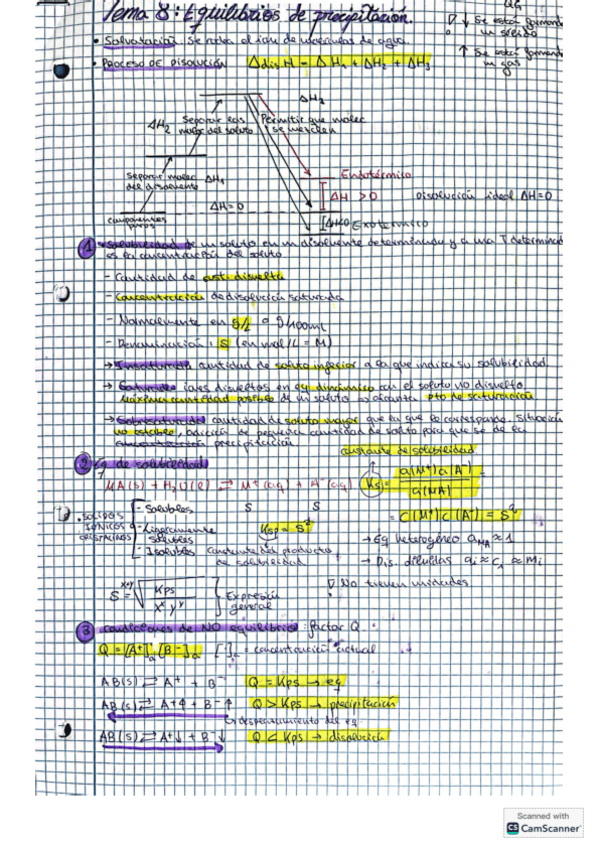 Tema 8: Equilibrios de precipitación.
∇ ↓ Se está formando un sólido
↑ Se está formando un gas
• Salvatación: Se rodea el ion de moléculas de agua.
• PROCESO DE DISOLUCIÓN ΔdisH = ΔH1 + ΔH2 + ΔH3
ΔH3
ΔH2 Separar las molec del soluto
Permitir que molec se mezclen
Separar molec del disolvente ΔH1
Endotérmico
ΔH > 0
Disolución ideal ΔH=0
ΔH=0
ΔH<0 Exotérmico
componentes puros
1 • Solubilidad de un soluto en un disolvente determinado y a una T determinada
es la concentración del soluto
- Cantidad de sust. disuelta
- Concentración de disolución saturada
- Normalmente en g/L o g/100mL
- Denominación: S (en mol/L = M)
→ Insaturada cantidad de soluto inferior a la que indica su solubilidad.
→ Saturada iones disueltos en eq dinámico con el soluto no disuelto.
Máxima cantidad posible de un soluto pto de saturación
→ Sobresaturada cantidad de soluto mayor que la que le corresponde. Situación
no estable, adición de pequeña cantidad de soluto para que se de la
precipitación.
constante de solubilidad
2 Eq de solubilidad
MA(s) + H2O(l) ⇌ M+(aq) + A-(aq) Ks = a(M+)a(A-) / a(MA) =
S S
= C(M+)C(A-) = S²
• SÓLIDOS IÓNICOS CRISTALINOS
- Solubles
- Ligeramente solubles
- Insolubles
Ksp = S²
Constante del producto de solubilidad
→ Eq heterogéneo aMA ≈ 1
→ Dis. diluidas ai ≈ ci ≈ mi
S = x+y√(Kps / x^x y^y) } Expresión general
∇ No tienen unidades
3 Condiciones de NO equilibrio: factor Q
Q = [A+]a [B-]a [ ]a = concentración actual
AB(s) ⇌ A+ + B- Q = Kps → eq
AB(s) ⇌ A+↑ + B-↑ Q > Kps → precipitación
↳ desplazamiento del eq
AB(s) ⇌ A+↓ + B-↓ Q < Kps → disolución
Scanned with
CS CamScanner